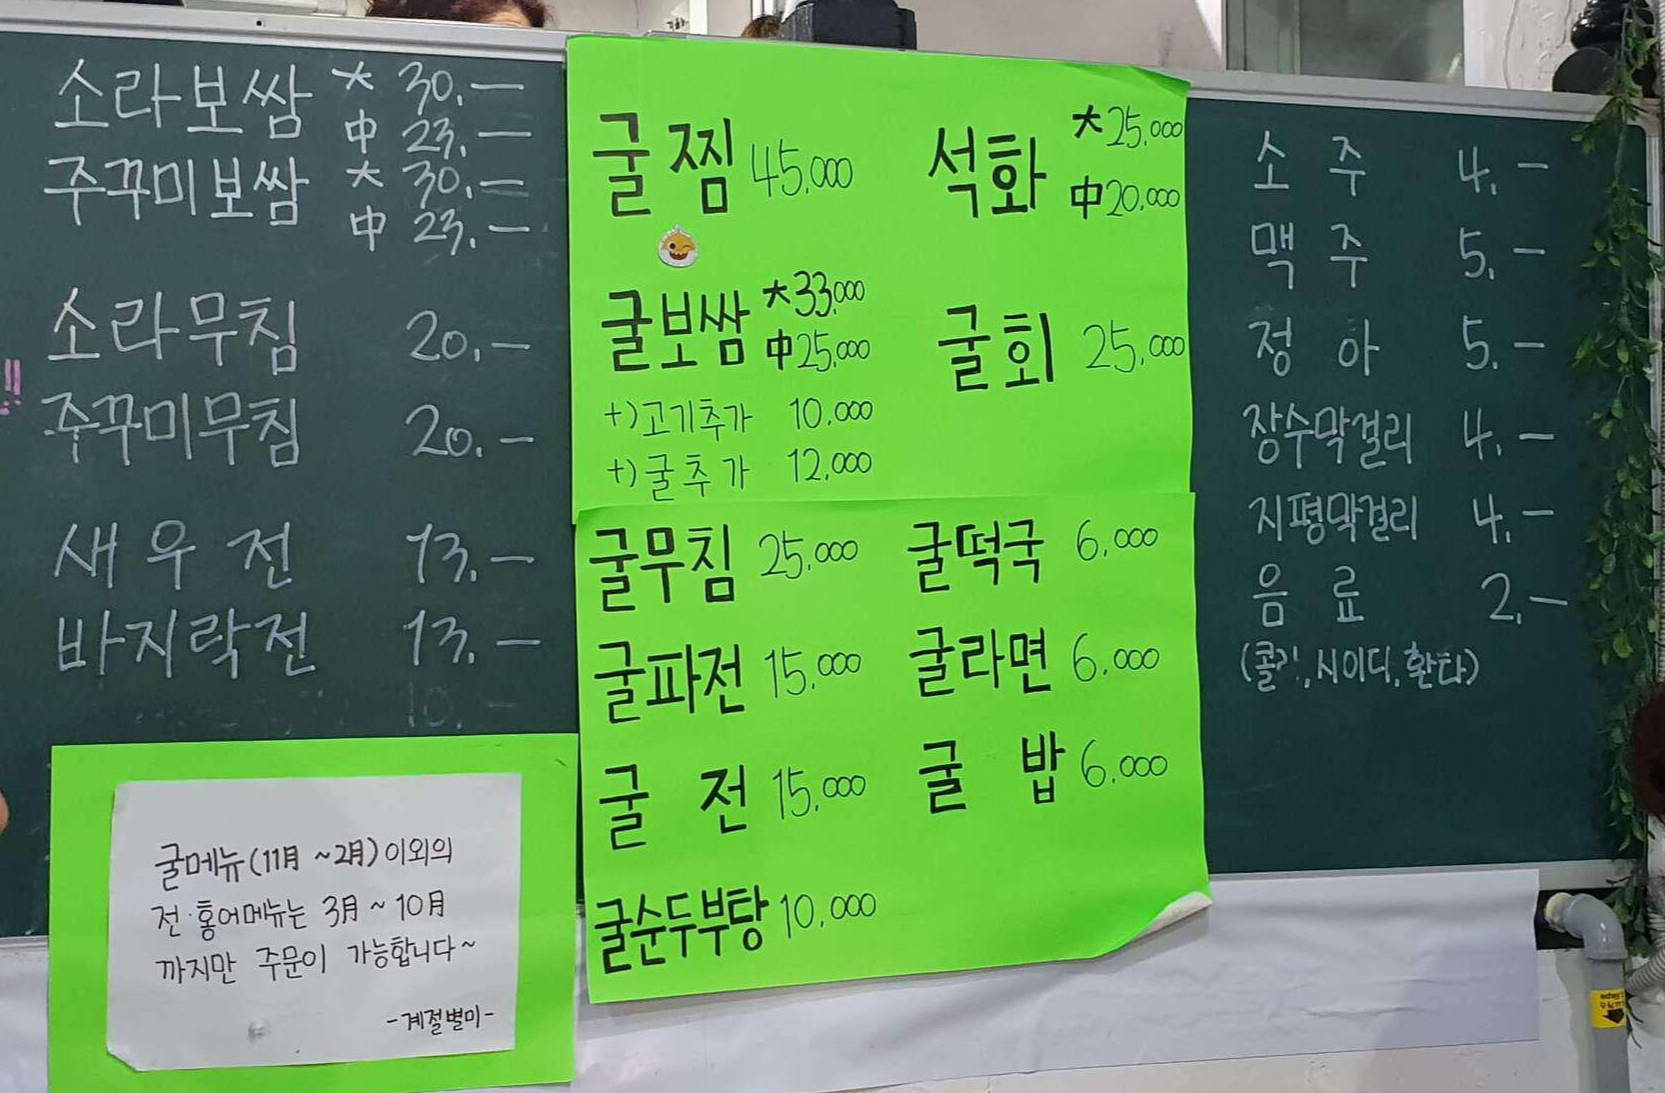 소라보쌈 大 30.-
中 23.-
주꾸미보쌈 大 30.-
中 23.-
소라무침 20.-
!!
주꾸미무침 20.-
새우전 13.-
바지락전 13.-
10.-
굴메뉴(11月 ~2月)이외의
전·홍어메뉴는 3月 ~ 10月
까지만 주문이 가능합니다~
-계절별미-
굴찜 45,000
석화 大25,000
中20,000
굴보쌈 大33,000
中25,000
+)고기추가 10,000
+)굴추가 12,000
굴회 25,000
굴무침 25,000
굴떡국 6,000
굴파전 15,000
굴라면 6,000
굴 전 15,000
굴 밥 6,000
굴순두부탕 10,000
소 주 4.-
맥 주 5.-
정 하 5.-
장수막걸리 4.-
지평막걸리 4.-
음 료 2.-
(콜라,사이다,환타)